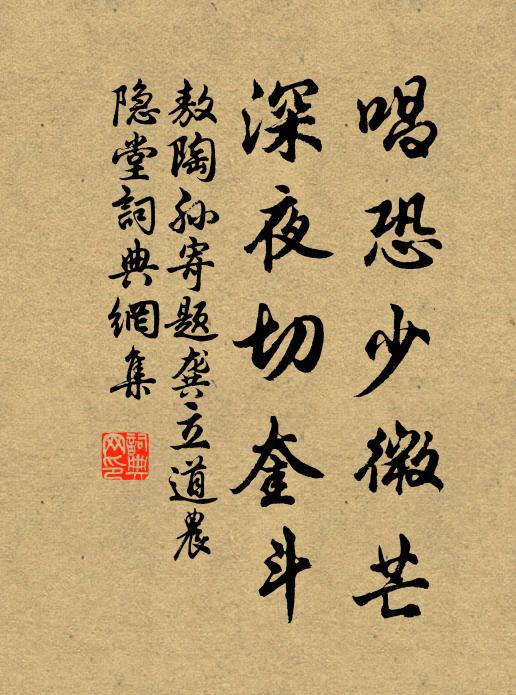 唱恐少微芒
深夜切奎斗
敖陶孙寄题龚立道农
隐堂詞典網集
詞典网印